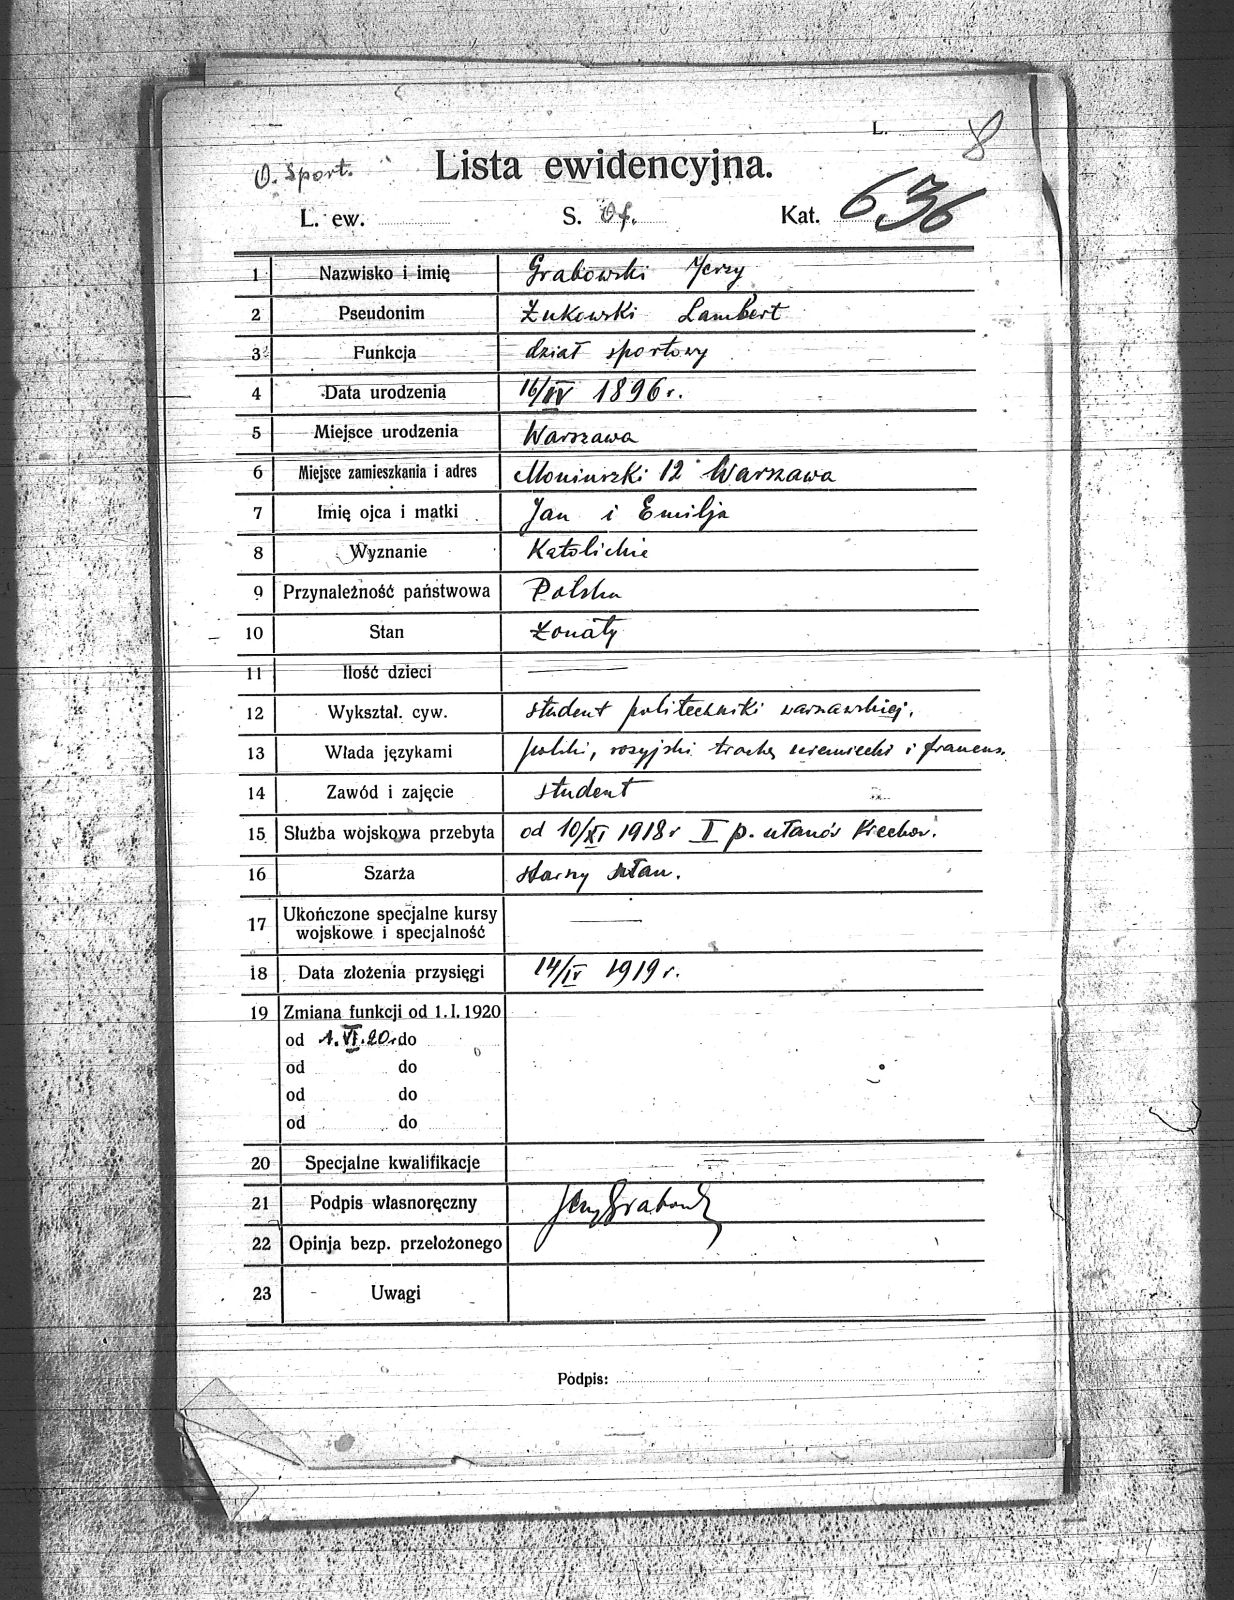 L. 8
O. Sport.
Lista ewidencyjna.
L. ew. S. Of. Kat. 636
1 Nazwisko i imię Grabowski Jerzy
2 Pseudonim Żukowski Lambert
3 Funkcja dział sportowy
4 Data urodzenia 16/IV 1896 r.
5 Miejsce urodzenia Warszawa
6 Miejsce zamieszkania i adres Moniuszki 12 Warszawa
7 Imię ojca i matki Jan i Emilja
8 Wyznanie Katolickie
9 Przynależność państwowa Polska
10 Stan żonaty
11 Ilość dzieci —
12 Wykształ. cyw. student politechniki warszawskiej.
13 Włada językami polski, rosyjski trochę niemiecki i francus.
14 Zawód i zajęcie student
15 Służba wojskowa przebyta od 10/XI 1918 r I p. ułanów Krechow.
16 Szarża starszy ułan.
17 Ukończone specjalne kursy
wojskowe i specjalność —
18 Data złożenia przysięgi 14/IV 1919 r.
19 Zmiana funkcji od 1. I. 1920
od 1. VI. 20. do
od do
od do
od do
20 Specjalne kwalifikacje
21 Podpis własnoręczny Jerzy Grabowski
22 Opinja bezp. przełożonego
23 Uwagi
Podpis: